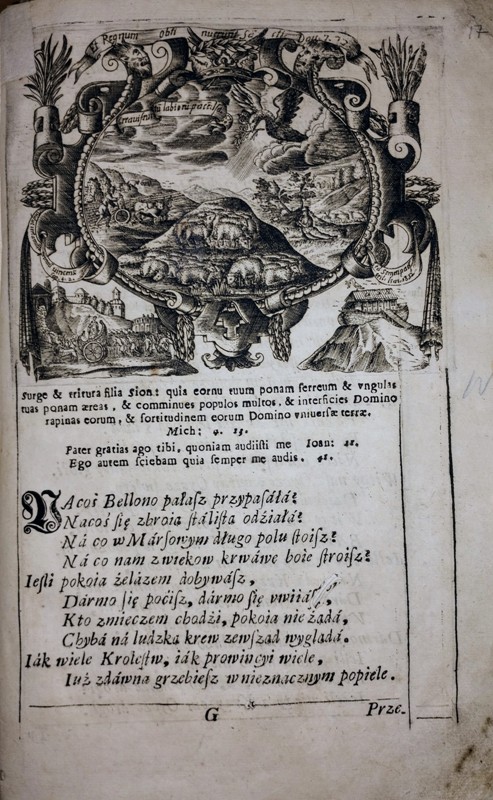 17
Et Regnum obti nuerunt Sancti Dan. 7. 22
Surge & tritura filia Sion: quia cornu tuum ponam ferreum & vngulas
tuas ponam æreas, & comminues populos multos, & interficies Domino
rapinas eorum, & fortitudinem eorum Domino vniuersæ terræ.
Mich: 4. 13.
Pater gratias ago tibi, quoniam audiisti me Ioan: 11.
Ego autem sciebam quia semper me audis. 41.
NAcoś Bellono pałasz przypasáłá?
Nacoś się zbroia stálista odźiałá?
Ná co w Mársowym długo polu stoisz?
Ná co nam z wiekow krwáwe boie stroisz?
Iesli pokoia żelázem dobywász,
Dármo się pocisz, dármo się vwiiász,
Kto zmieczem chodźi, pokoia nie żąda,
Chybá ná ludzka krew zewsząd wygląda.
Iák wiele Krolestw, iák prowincyi wiele,
Iuż zdáwna grzebiesz w nieznacznym popiele.
G
Prze-